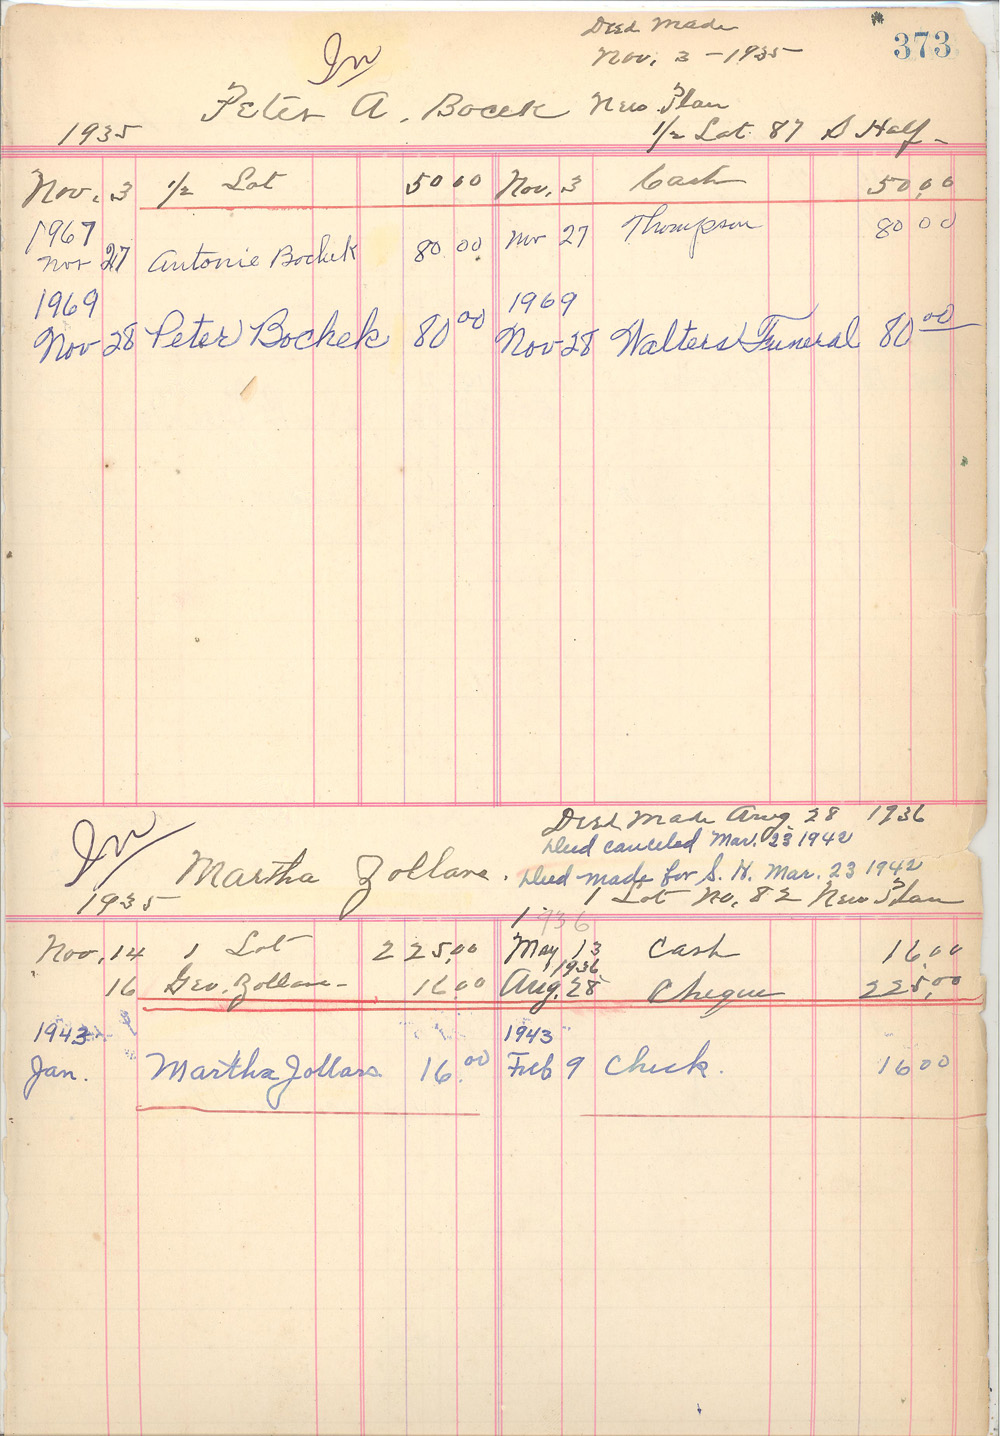 Deed Made
Nov. 3 - 1935
373
In
Peter A. Bocek New Plan
1935 1/2 Lot 87 S Half
Nov. 3 1/2 Lot 50 00 Nov. 3 Cash 50.00
1967
Nov 27 Antonie Bochek 80 00 Nov 27 Thompson 80 00
1969 1969
Nov 28 Peter Bochek 80 00 Nov 28 Walters Funeral 80 00
In
Deed Made Aug 28 1936
Deed canceled Mar. 23 1942
Martha Zollars. Deed made for S. H. Mar. 23 1942
1935 1 Lot No. 82 New Plan
1936
Nov. 14 1 Lot 225.00 May 13 Cash 16.00
1936
16 Geo. Zollars 16.00 Aug. 28 Cheque 225.00
1943 1943
Jan. Martha Zollars 16.00 Feb 9 Check. 16 00